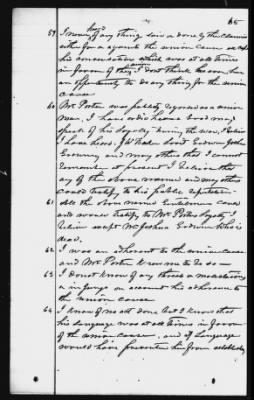 65
59 I never heard of any thing said or done by the claimant
either for or against the union cause except
his conversation which was at all times
in favor of the union I dont think he ever had
an opportunity to do any thing for the union
cause
60 Mr. Porter was publicly regarded as a union
man, I have also heard
speak of his loyalty during the war,
I have heard J W Godwin John
and many others that I cannot
remember at present I believe that
any of the above named and many others
could testify to his public reputation
61 All the above named Gentlemen could
and would testify to Mr Porters loyalty I
believe except Mr Joshua Godwin who is
dead.
62 I was an adherent to the union cause
and Mr Porter knew me to be so —
63 I do not know of any threats or molestations
or injury on account his adherence to
the union cause
64 I know of no act done but I know that
his language was at all times in favor
of the union cause, and if language
would have prevented him from establishing